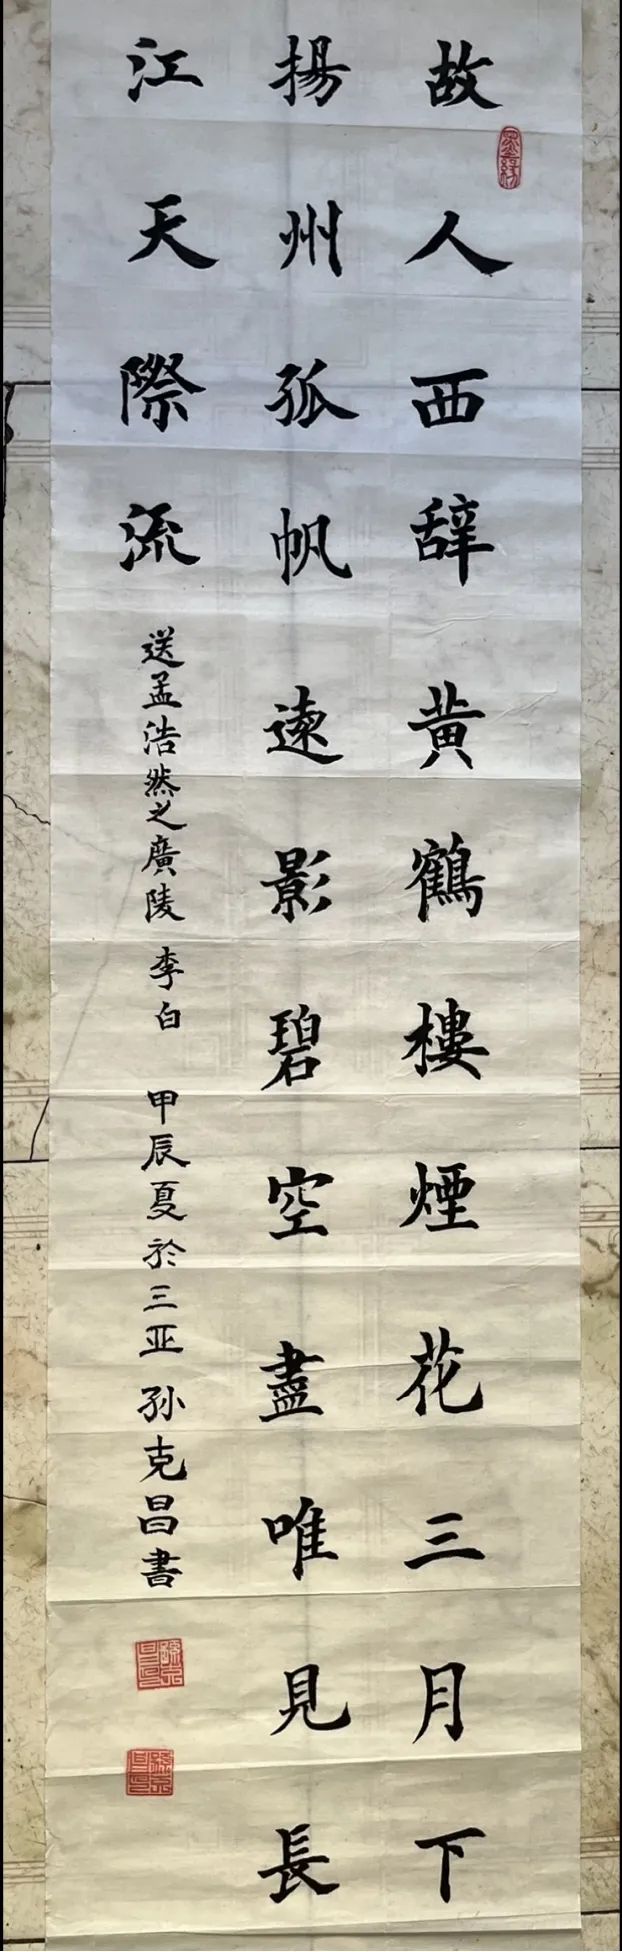 故人西辞黄鶴樓煙花三月下
揚州孤帆遠影碧空盡唯見長
江天際流
送孟浩然之廣陵 李白 甲辰夏於三亚 孙克昌書